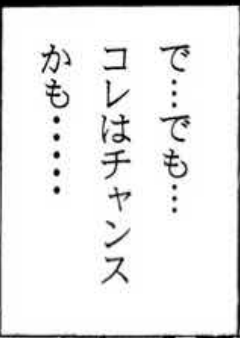 で…でも…
コレはチャンス
かも・・・・・